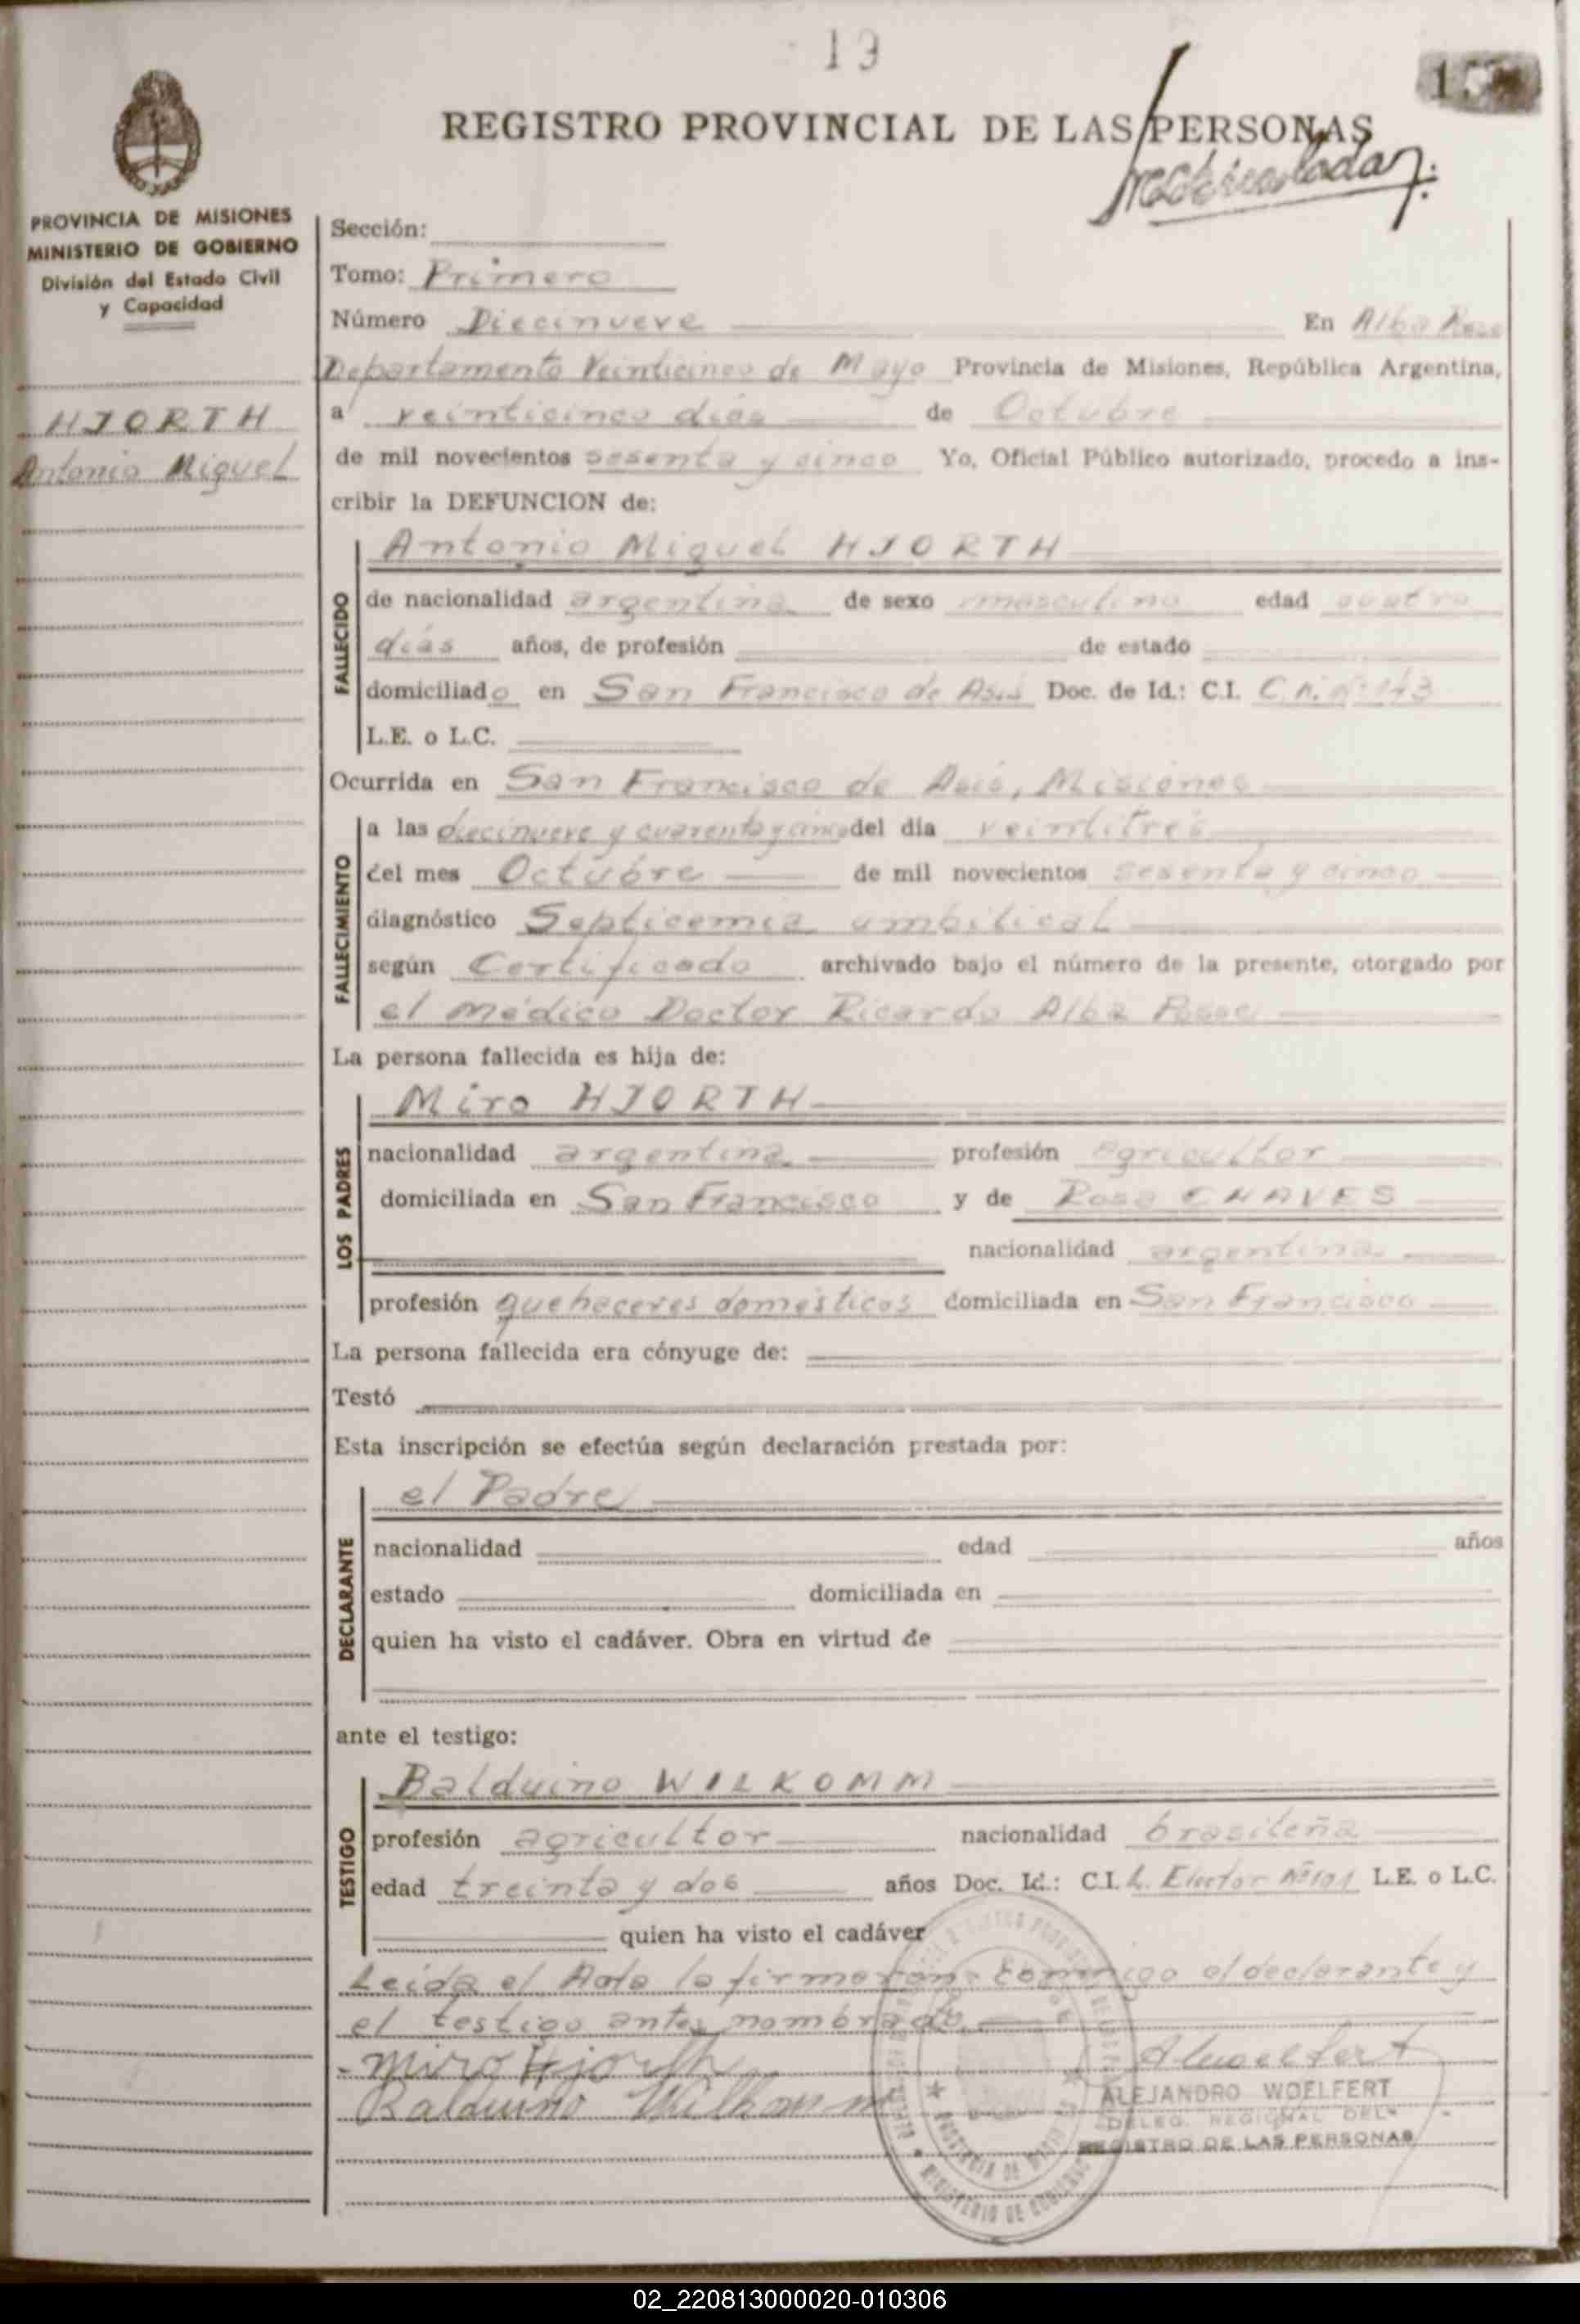 19
REGISTRO PROVINCIAL DE LAS PERSONAS
PROVINCIA DE MISIONES
MINISTERIO DE GOBIERNO
División del Estado Civil
y Capacidad
HJORTH
Antonio Miguel
Sección:
Tomo: Primero
Número Diecinueve En Alba Posse
Departamento Veinticinco de Mayo Provincia de Misiones, República Argentina,
a veinticinco dias de Octubre
de mil novecientos sesenta y cinco Yo, Oficial Público autorizado, procedo a ins-
cribir la DEFUNCION de:
Antonio Miguel HJORTH
FALLECIDO
de nacionalidad argentina de sexo masculino edad cuatro
dias años, de profesión de estado
domiciliado en San Francisco de Asis Doc. de Id.: C.I. C.N. Nº 143
L.E. o L.C.
Ocurrida en San Francisco de Asis, Misiones
FALLECIMIENTO
a las diecinueve y cuarenta y cinco del día veintitrés
del mes Octubre de mil novecientos sesenta y cinco
diagnóstico Septicemia umbilical
según Certificado archivado bajo el número de la presente, otorgado por
el médico Doctor Ricardo Alba Posse
La persona fallecida es hija de:
LOS PADRES
Miro HJORTH
nacionalidad argentina profesión agricultor
domiciliada en San Francisco y de Rosa CHAVES
nacionalidad argentina
profesión quehaceres domésticos domiciliada en San Francisco
La persona fallecida era cónyuge de:
Testó
Esta inscripción se efectúa según declaración prestada por:
DECLARANTE
el Padre
nacionalidad edad años
estado domiciliada en
quien ha visto el cadáver. Obra en virtud de
ante el testigo:
TESTIGO
Balduino WILKOMM
profesión agricultor nacionalidad brasileña
edad treinta y dos años Doc. Id.: C.I. L. Elector Nº 191 L.E. o L.C.
quien ha visto el cadáver
Leida el Acta la firmaron conmigo el declarante y
el testigo antes nombrado.
Miro Hjorth
Balduino Wilkomm
AWoelfert
ALEJANDRO WOELFERT
DELEG. REGIONAL DEL
REGISTRO DE LAS PERSONAS
02_220813000020-010306